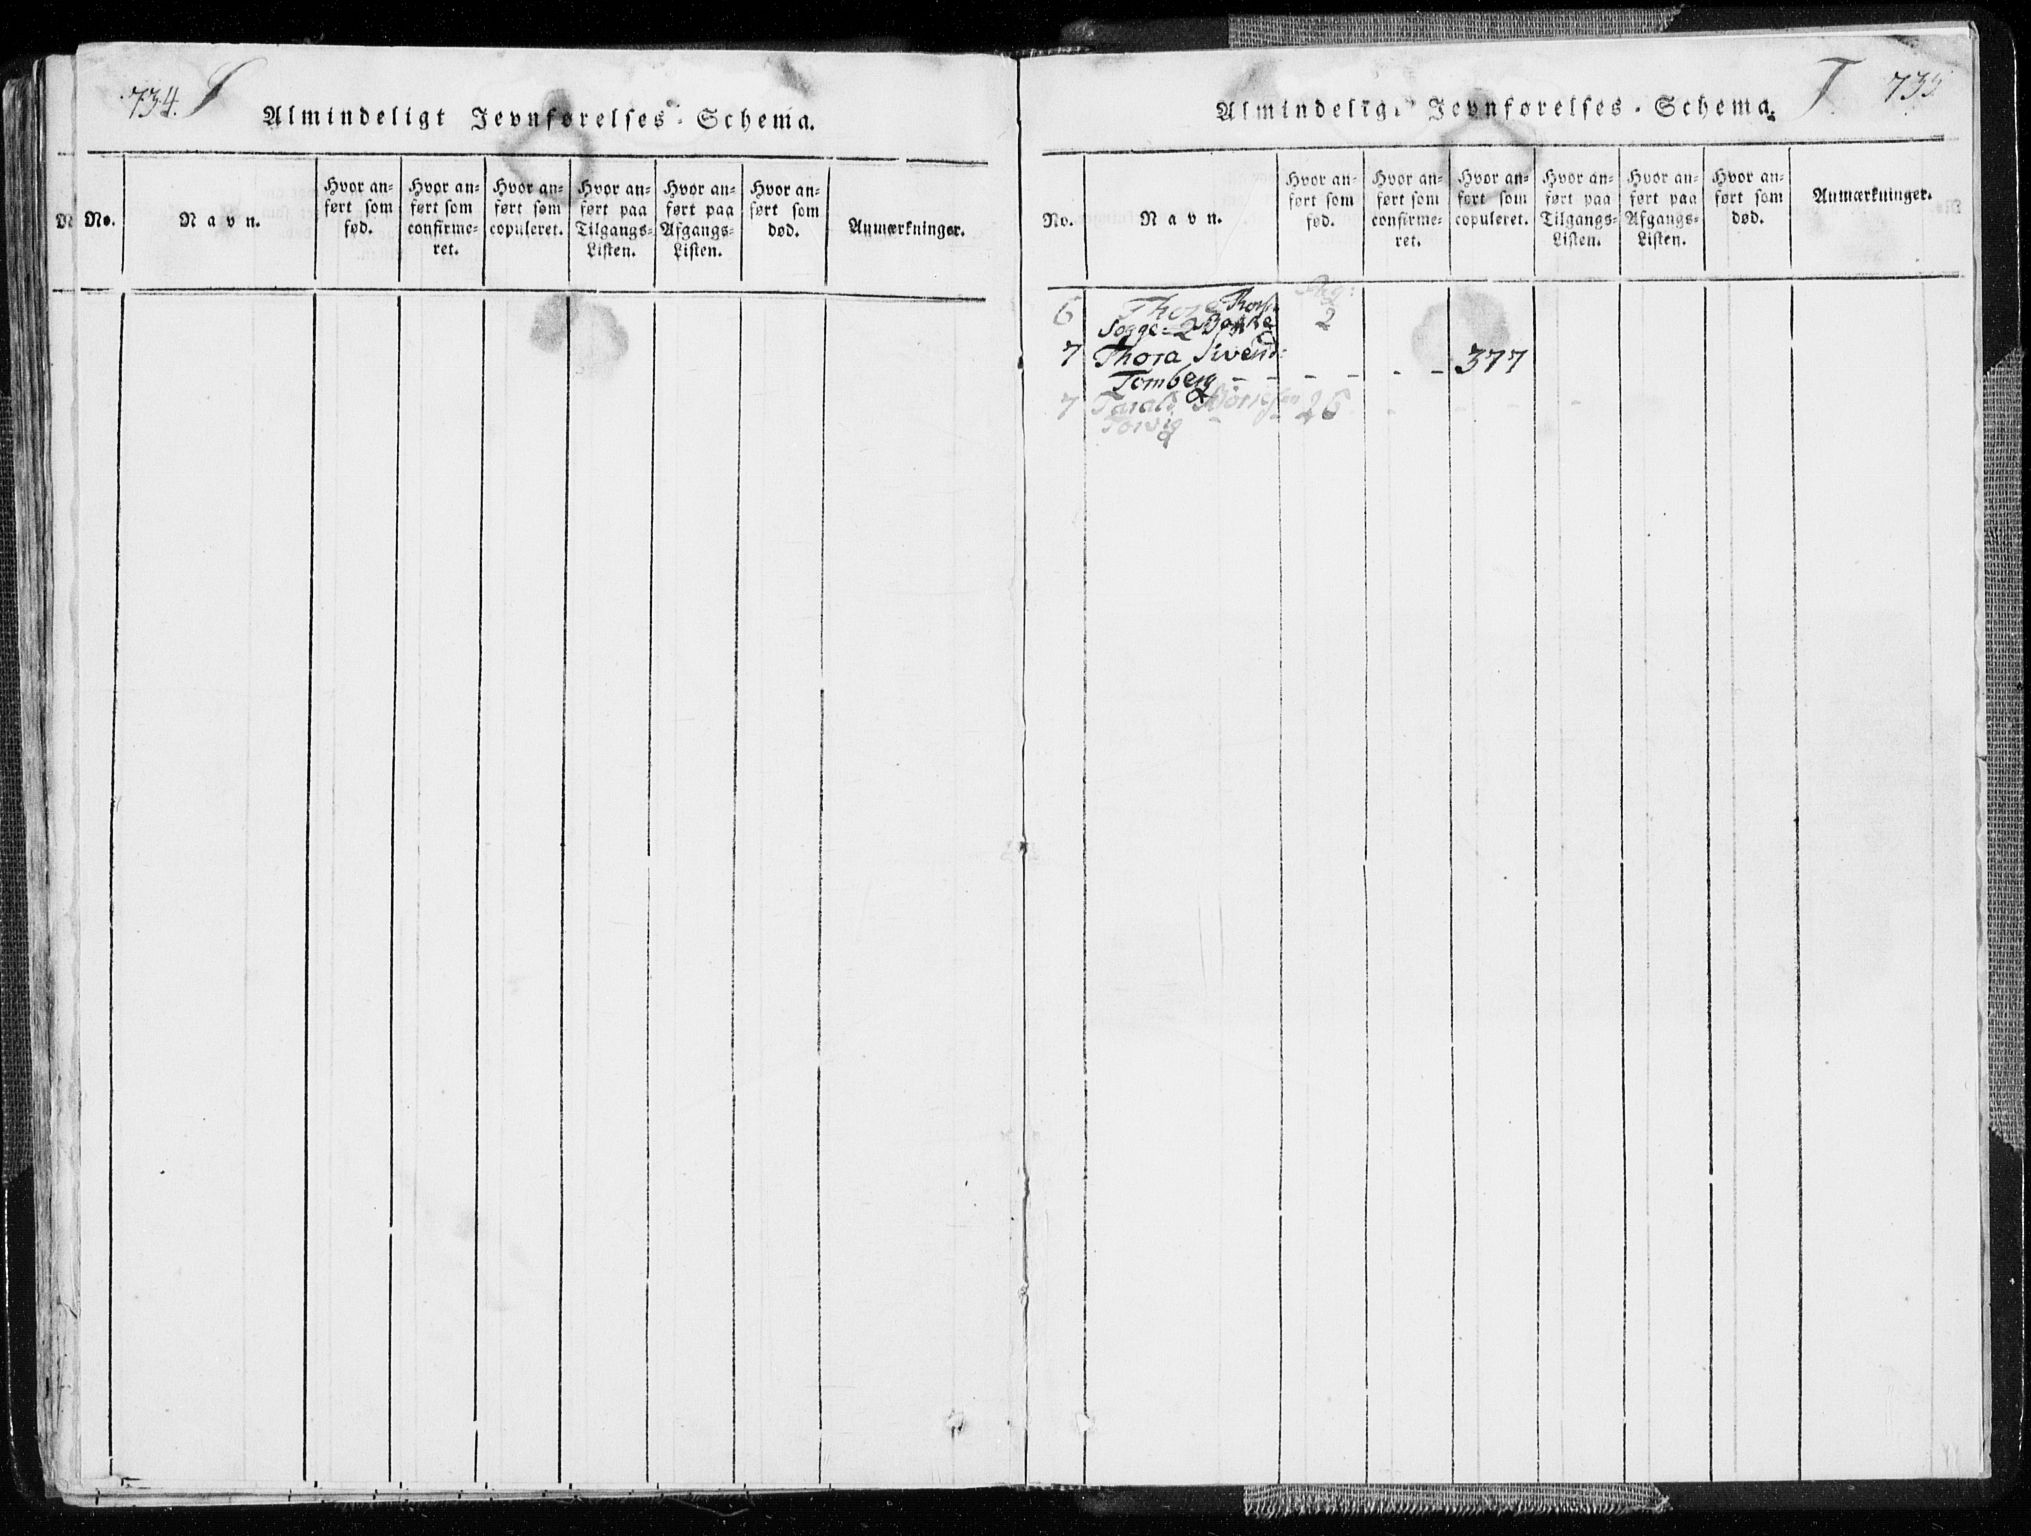 734. S
Almindeligt Jevnførelses-Schema.
No.
Navn.
Hvor anført som fød.
Hvor anført som confirmeret.
Hvor anført som copuleret.
Hvor anført paa Tilgangs-Listen.
Hvor anført paa Afgangs-Listen.
Hvor anført som død.
Anmærkninger.
Almindeligt Jevnførelses-Schema. T. 735
No.
Navn.
Hvor anført som fød.
Hvor anført som confirmeret.
Hvor anført som copuleret.
Hvor anført paa Tilgangs-Listen.
Hvor anført paa Afgangs-Listen.
Hvor anført som død.
Anmærkninger.
Pag:
6 Thore 2
Sogge
7 Thora Sivend:
Tomberg - - - - - - 377
7 Tarald 26 - - -
Torvig